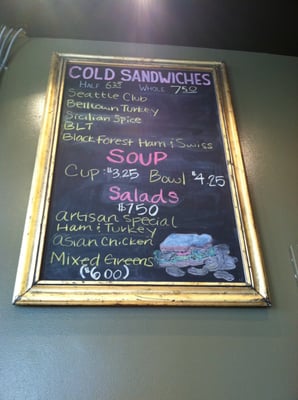 COLD SANDWICHES
HALF 6.25 WHOLE 7.50
Seattle Club
Belltown Turkey
Sicilian Spice
BLT
Black Forest Ham & Swiss
SOUP
Cup $3.25 Bowl $4.25
Salads
$7.50
Artisan Special
Ham & Turkey
Asian Chicken
Mixed Greens
($6.00)